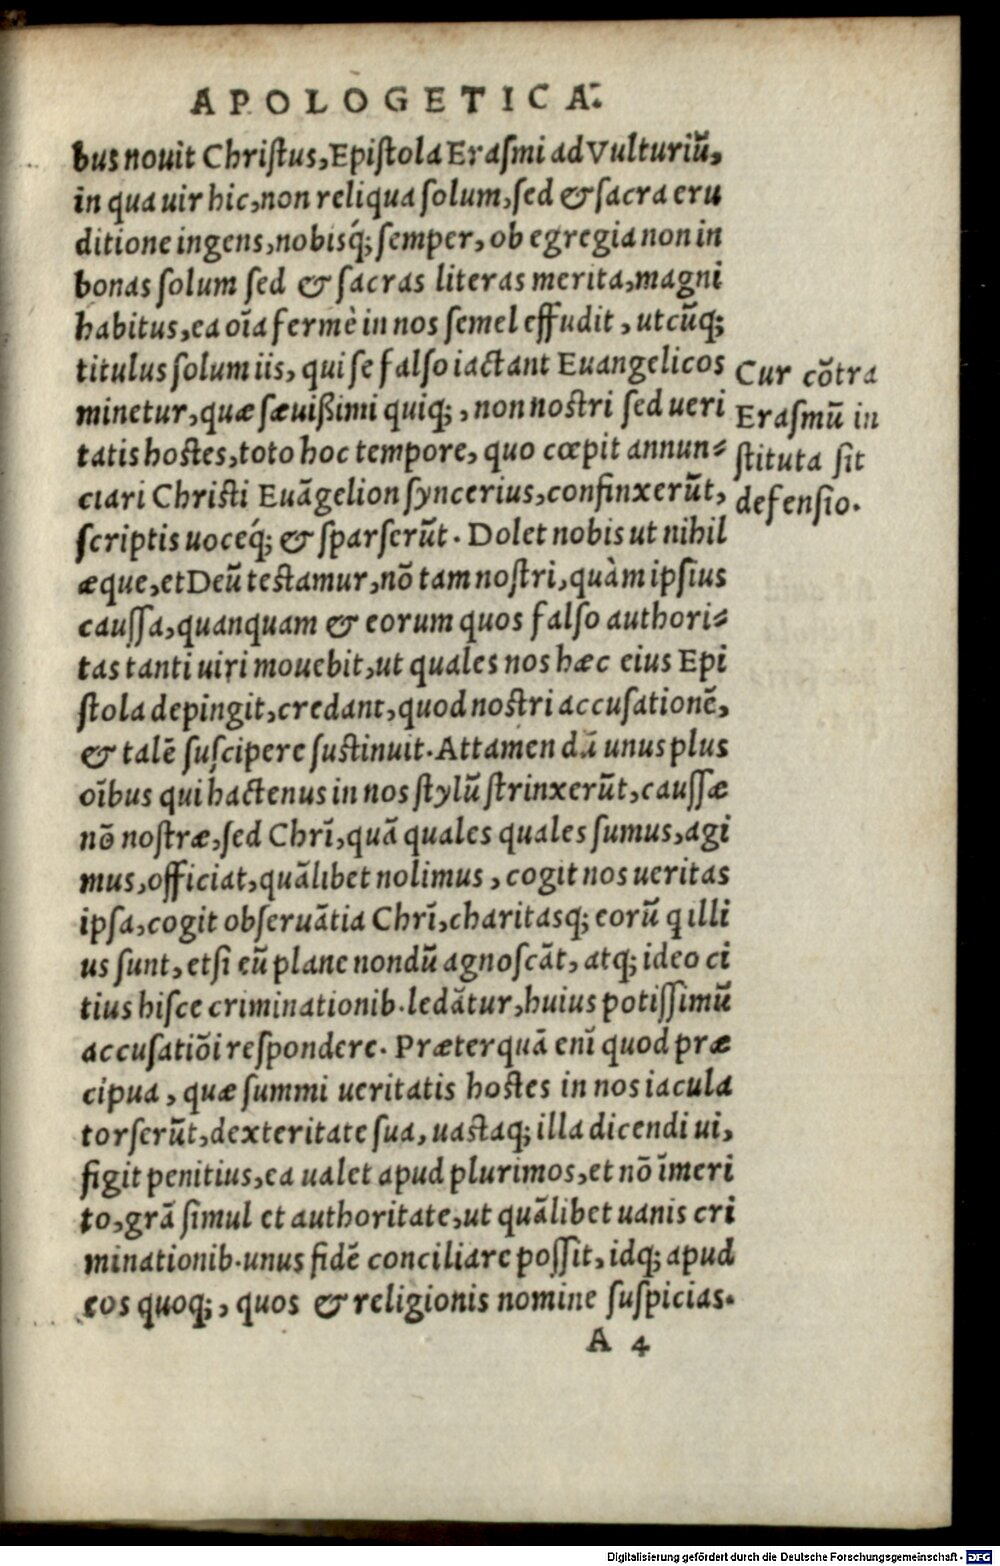 APOLOGETICA.
bus nouit Christus, Epistola Erasmi ad Vulturiũ,
in qua uir hic, non reliqua solum, sed & sacra eru
ditione ingens, nobisq́; semper, ob egregia non in
bonas solum sed & sacras literas merita, magni
habitus, ea oĩa fermè in nos semel effudit, utcũq;
titulus solum iis, qui se falso iactant Euangelicos
minetur, quæ sæuißimi quiq;, non nostri sed ueri
tatis hostes, toto hoc tempore, quo cœpit annun-
ciari Christi Euãgelion syncerius, confinxerũt,
scriptis uoceq́; & sparserũt. Dolet nobis ut nihil
æque, et Deũ testamur, nõ tam nostri, quàm ipsius
caussa, quanquam & eorum quos falso authori-
tas tanti uiri mouebit, ut quales nos hæc eius Epi
stola depingit, credant, quod nostri accusationẽ,
& talẽ suscipere sustinuit. Attamen dũ unus plus
oĩbus qui hactenus in nos stylũ strinxerũt, caussæ
nõ nostræ, sed Chrĩ, quã quales quales sumus, agi
mus, officiat, quãlibet nolimus, cogit nos ueritas
ipsa, cogit obseruãtia Chrĩ, charitasq; eorũ q illi
us sunt, etsi eũ plane nondũ agnoscãt, atq; ideo ci
tius hisce criminationib. ledãtur, huius potissimũ
accusatiõi respondere. Præterquã enĩ quod præ
cipua, quæ summi ueritatis hostes in nos iacula
torserũt, dexteritate sua, uastaq; illa dicendi ui,
figit penitius, ea ualet apud plurimos, et nõ ĩmeri
to, grã simul et authoritate, ut quãlibet uanis cri
minationib. unus fidẽ conciliare possit, idq; apud
eos quoq;, quos & religionis nomine suspicias.
A 4
Cur cõtra
Erasmũ in
stituta sit
defensio.
Digitalisierung gefördert durch die Deutsche Forschungsgemeinschaft - DFG